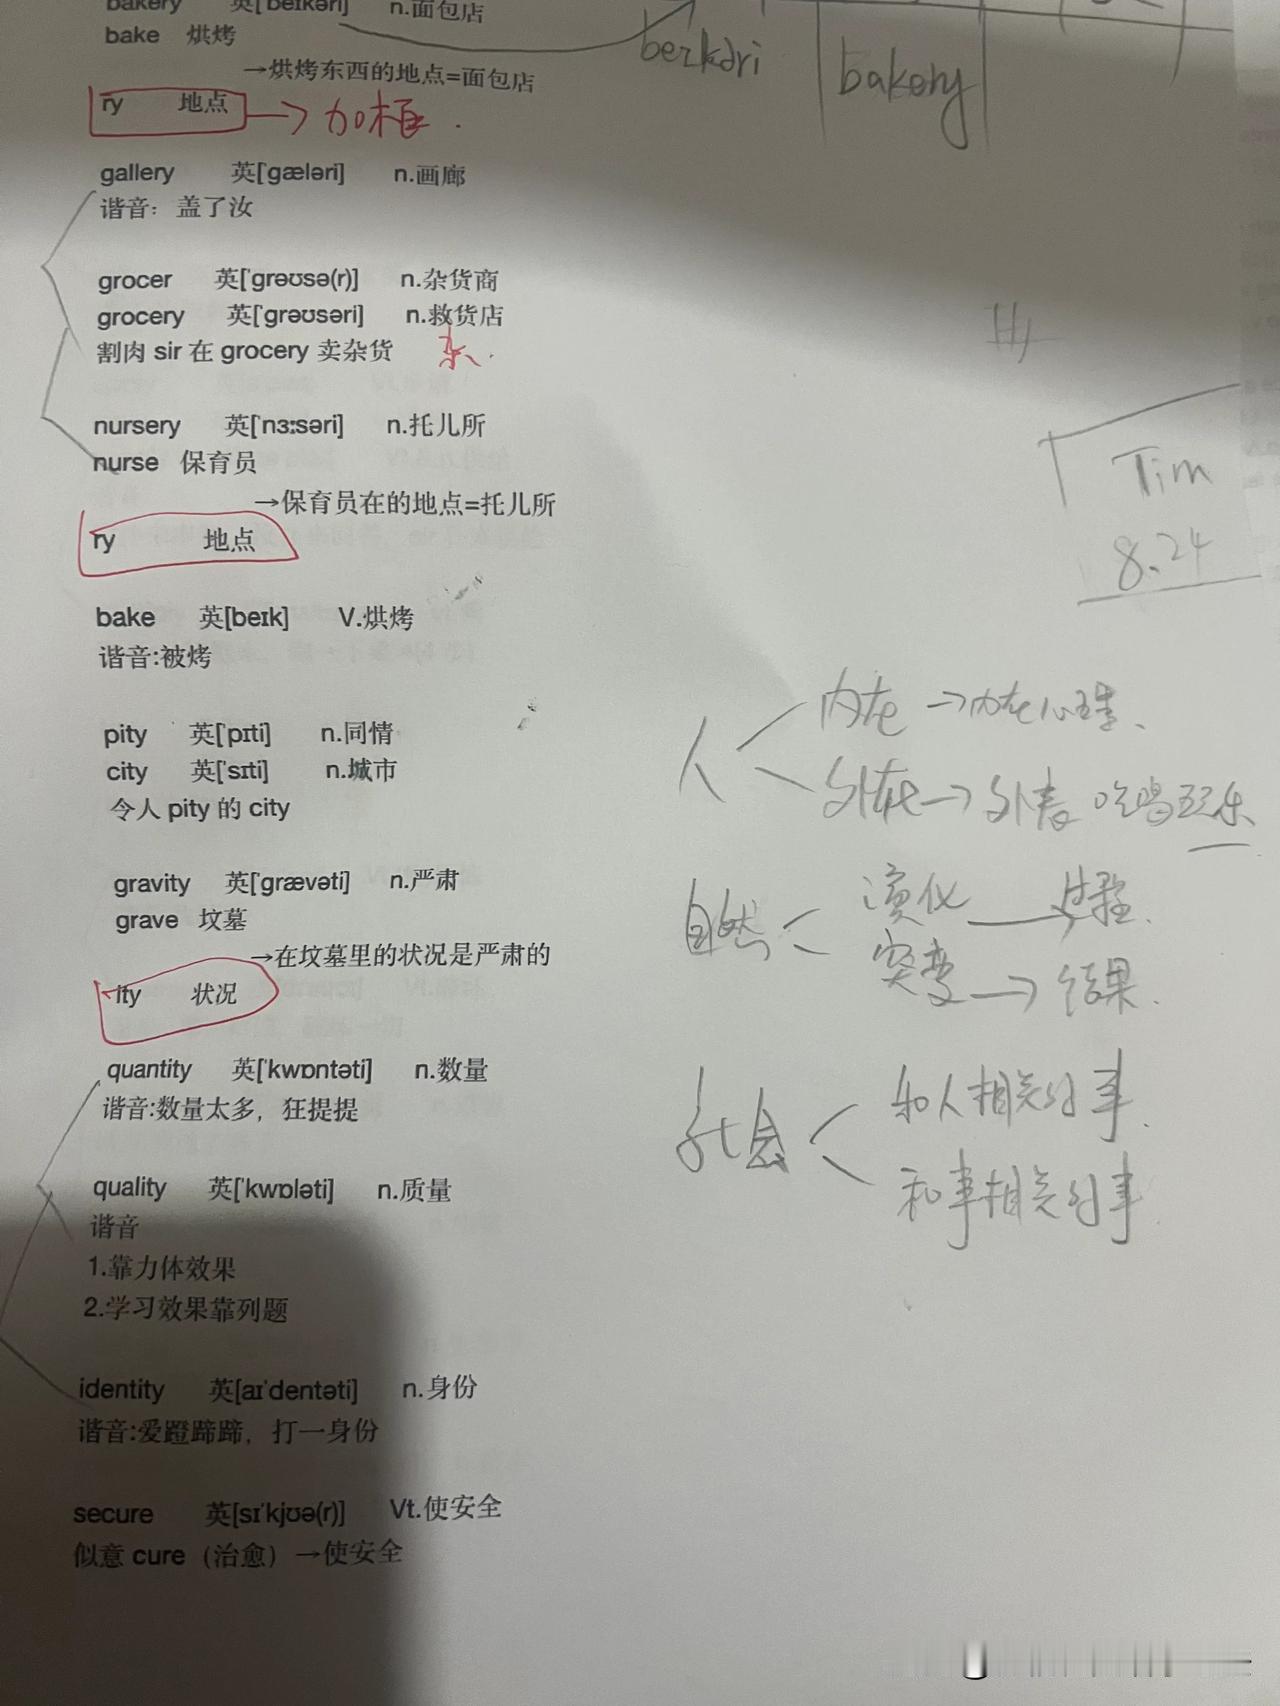 bakery 英['beɪkəri] n.面包店
bake 烘烤
→烘烤东西的地点=面包店
ry 地点 → 加框.
gallery 英['gæləri] n.画廊
谐音：盖了汝
grocer 英['grəʊsə(r)] n.杂货商
grocery 英['grəʊsəri] n.救货店
割肉 sir 在 grocery 卖杂货 杂.
nursery 英['nɜːsəri] n.托儿所
nurse 保育员
→保育员在的地点=托儿所
ry 地点
bake 英[beɪk] V.烘烤
谐音:被烤
pity 英['pɪti] n.同情
city 英['sɪti] n.城市
令人 pity 的 city
gravity 英['grævəti] n.严肃
grave 坟墓
→在坟墓里的状况是严肃的
ity 状况
quantity 英['kwɒntəti] n.数量
谐音:数量太多，狂提提
quality 英['kwɒləti] n.质量
谐音
1.靠力体效果
2.学习效果靠列题
identity 英[aɪ'dentəti] n.身份
谐音:爱蹬蹄蹄，打一身份
secure 英[sɪ'kjʊə(r)] Vt.使安全
似意 cure（治愈）→使安全
beɪkəri
bakery
Tim
8.24
人
内在 → 内在心理、
外在 → 外表 吃喝玩乐
自然
演化 → 过程.
突变 → 结果.
社会
和人相关的事.
和事相关的事